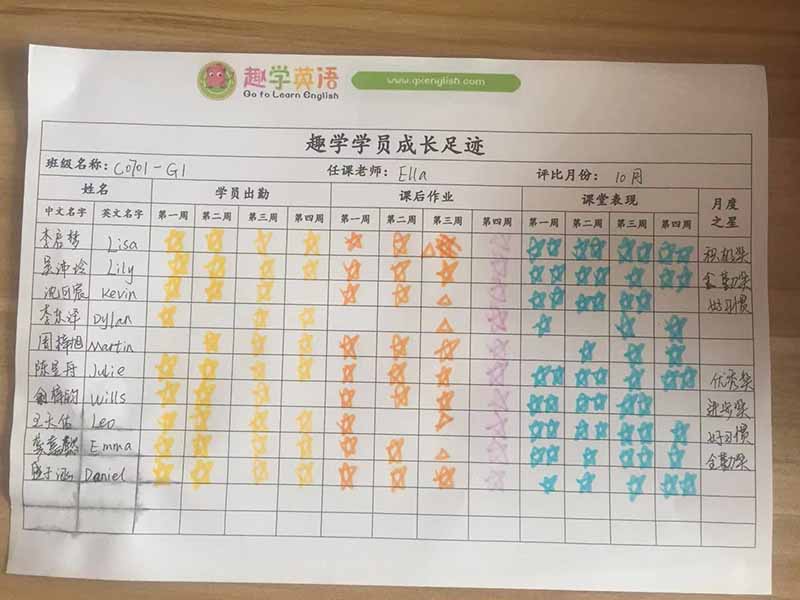 趣学英语
Go to Learn English
www.qxenglish.com
趣学学员成长足迹
班级名称: C0701-G1 任课老师: Ella 评比月份: 10月
姓名 学员出勤 课后作业 课堂表现 月度之星
中文名字 英文名字 第一周 第二周 第三周 第四周 第一周 第二周 第三周 第四周 第一周 第二周 第三周 第四周
Lisa 积极奖
Lily 全勤奖
Kevin 好习惯
Dylan
Martin
Julie 优秀奖
Wills 进步奖
王天佑 Leo 好习惯
Emma 全勤奖
Daniel